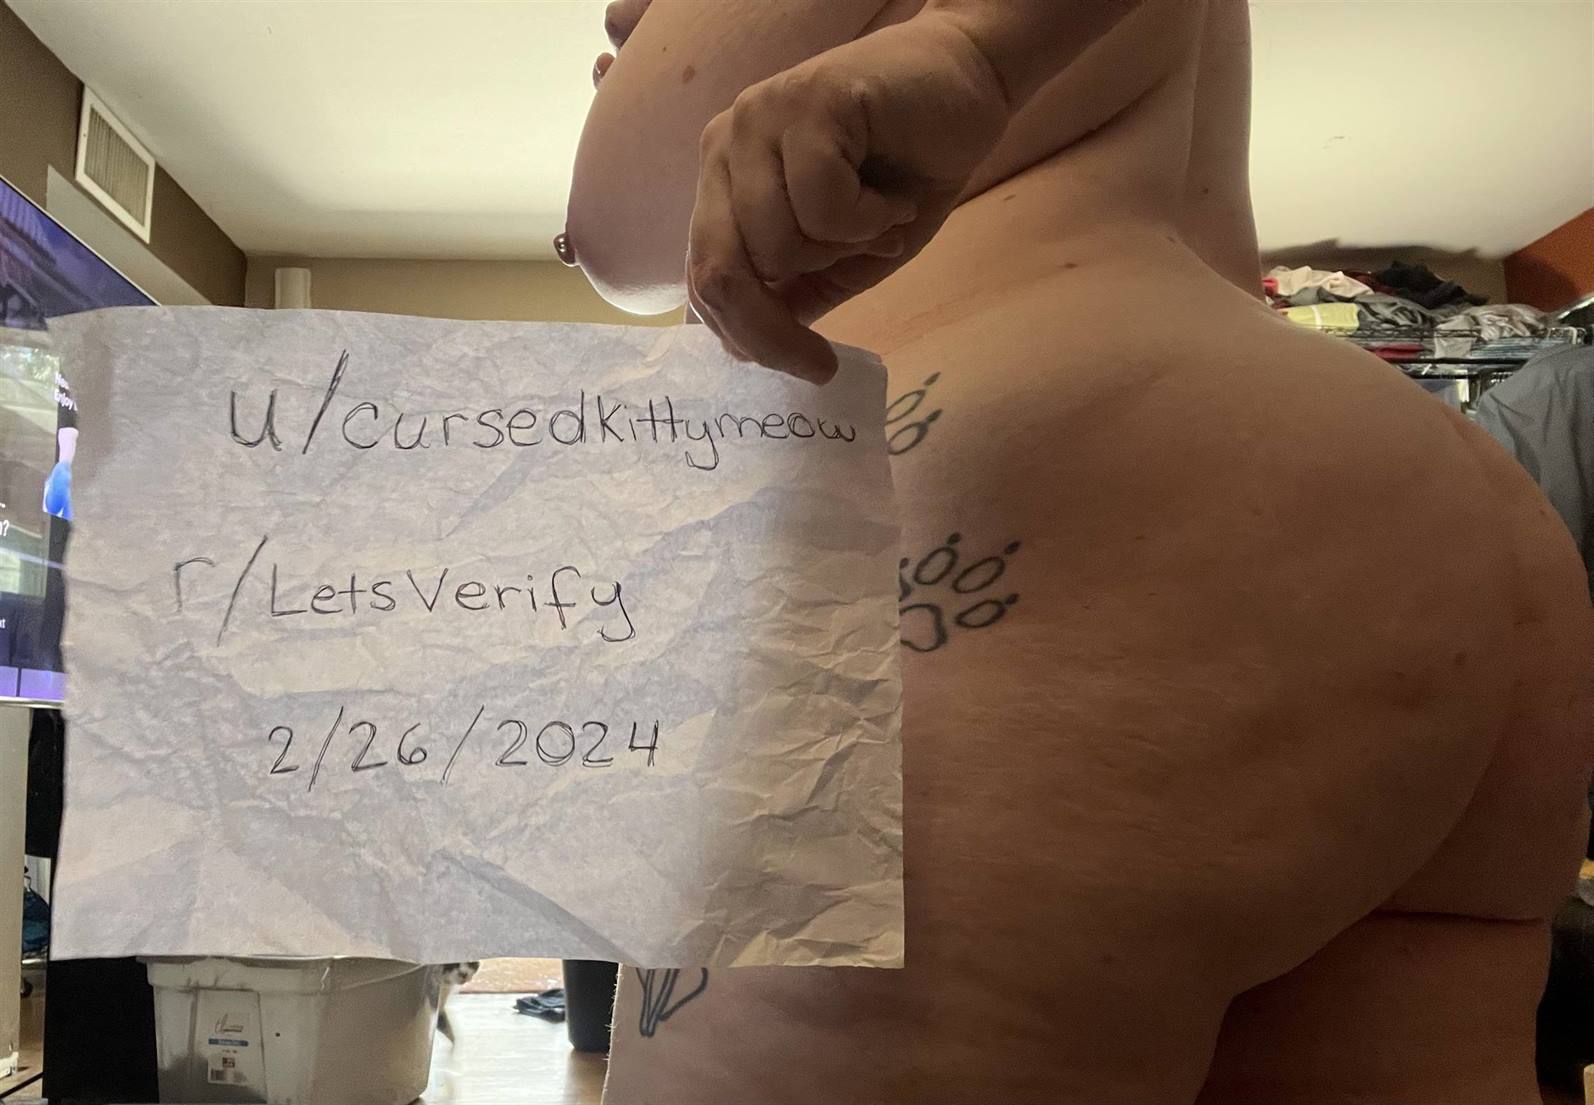 u/cursedkittymeow
r/LetsVerify
2/26/2024